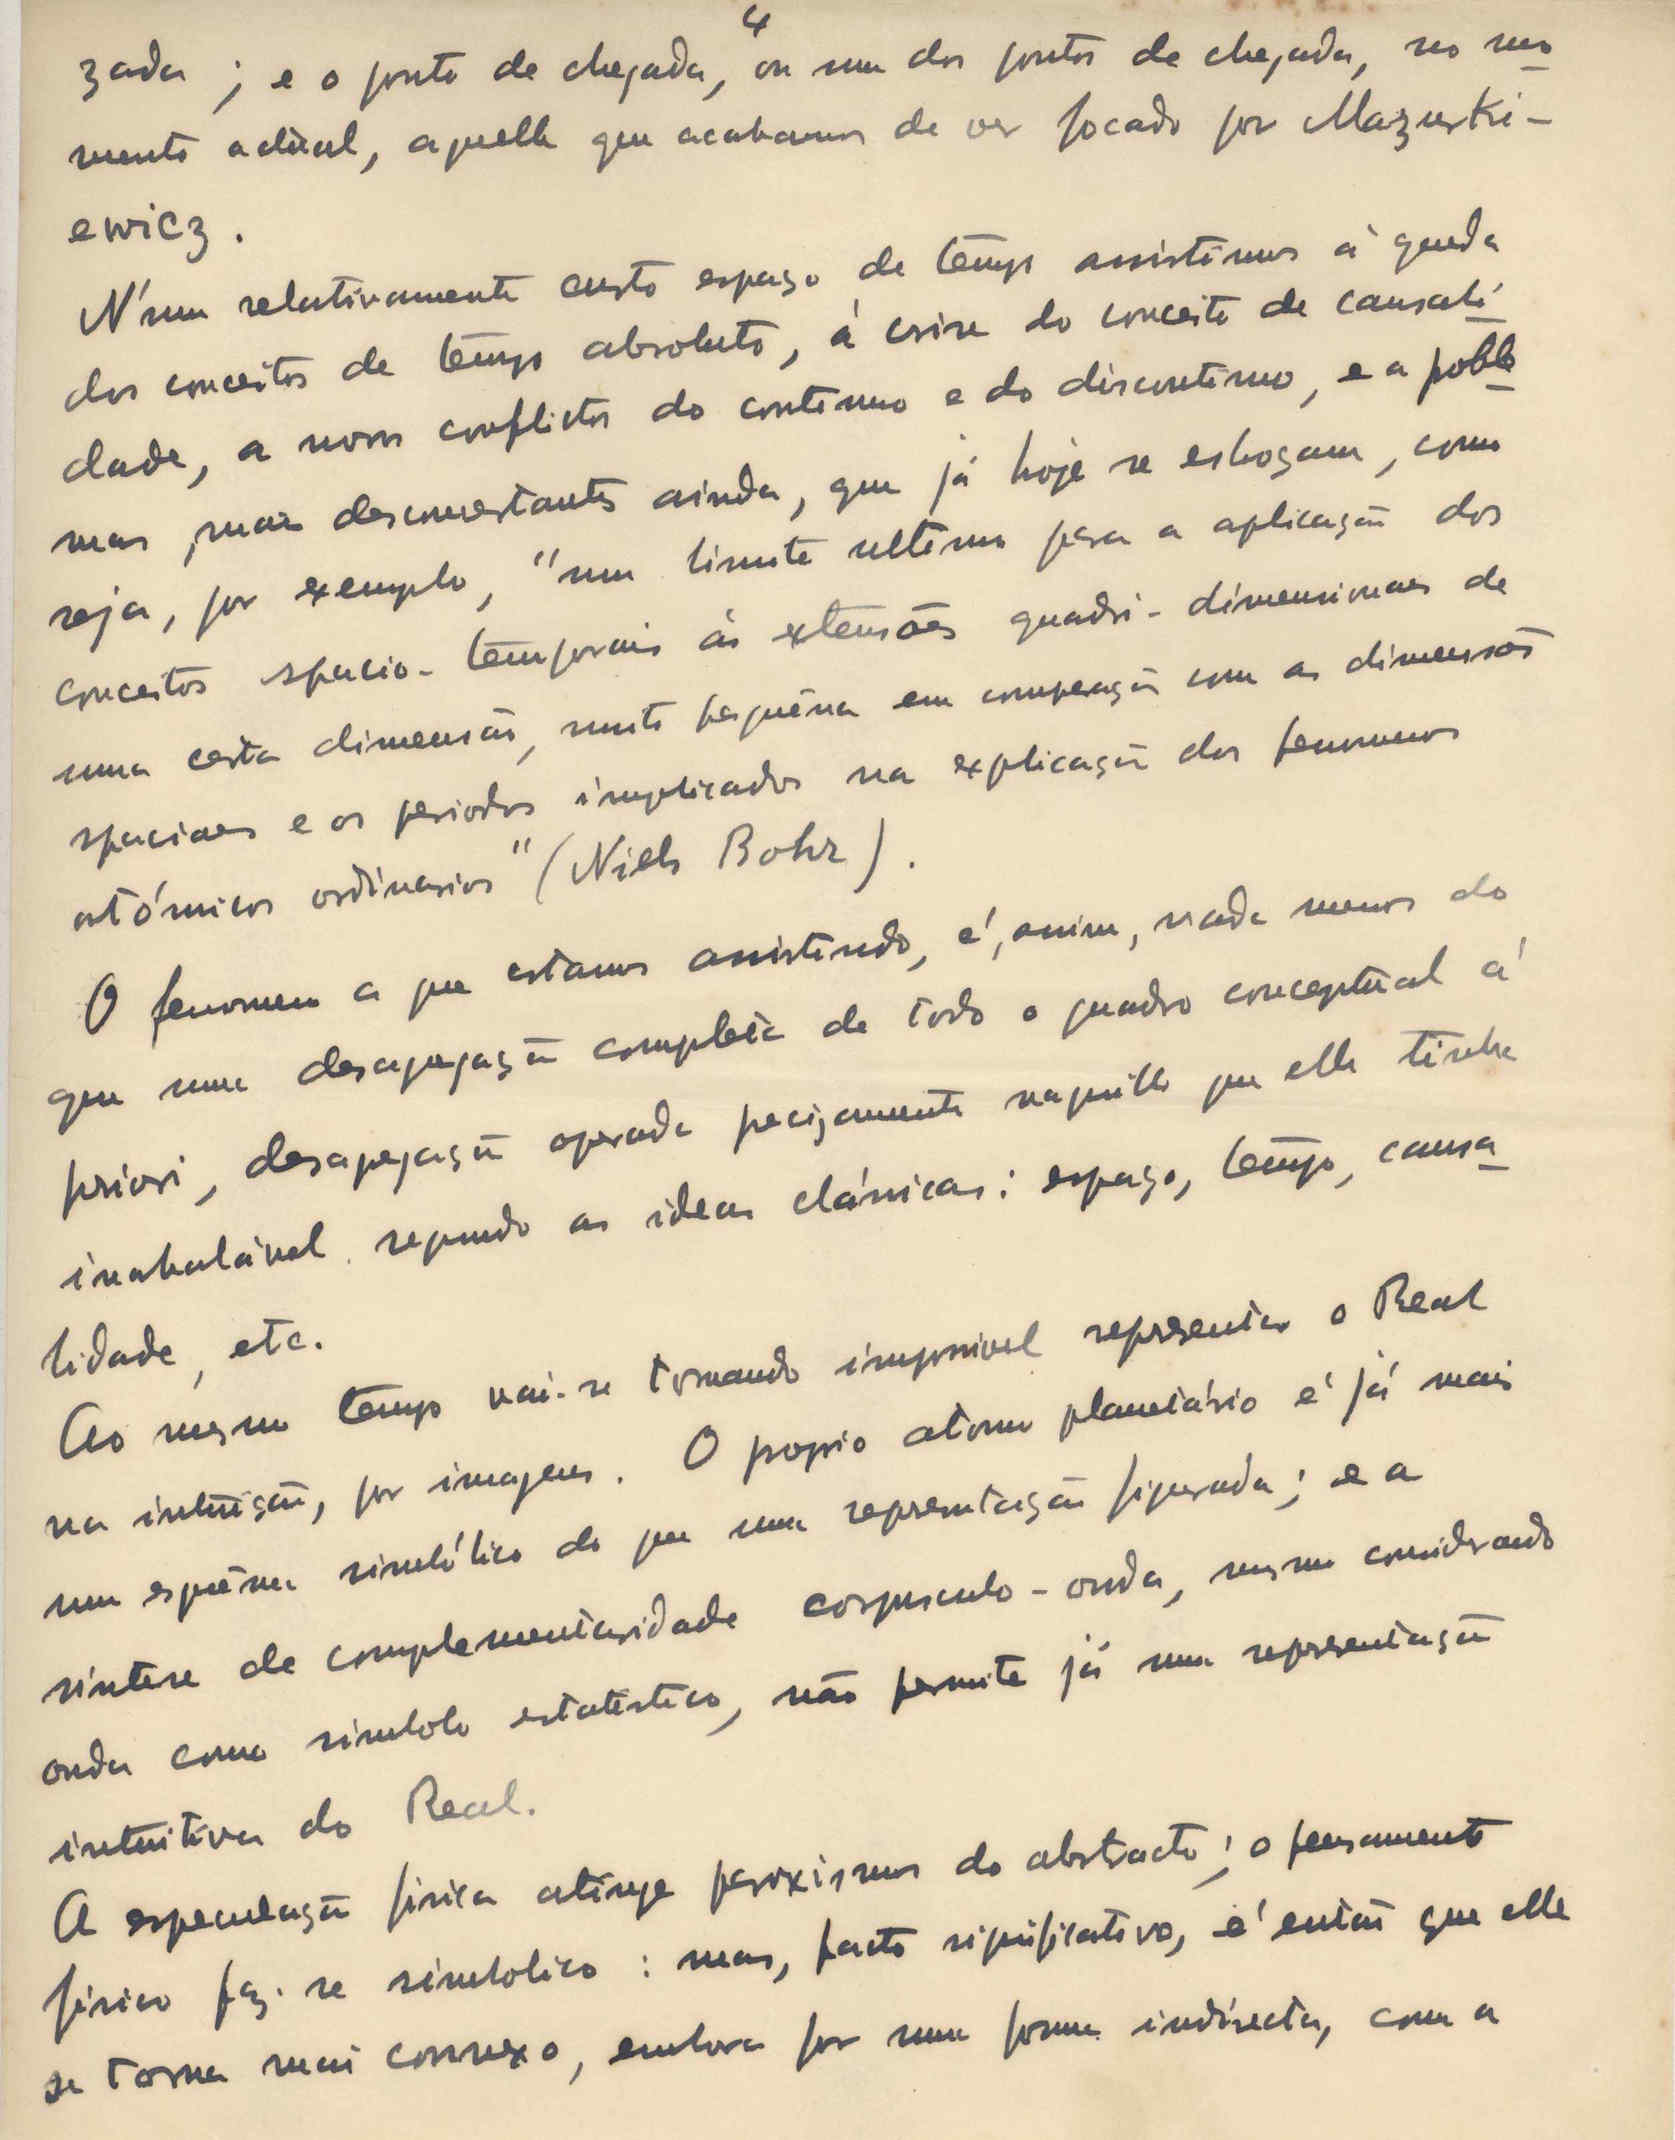 4
zada ; e o ponto de chegada, ou um dos pontos de chegada, no mo
mento actual, aquelle que acabamos de ver focado por Mazurki-
ewicz.
N'um relativamente curto espaço de tempo assistimos á queda
dos conceitos de tempo absoluto, á crise do conceito de causali
dade, a novos conflictos do continuo e do discontinuo, e a poble
mas, mais desconcertantes ainda, que já hoje se esboçam, como
seja, por exemplo, "um limite ultimo para a aplicação dos
conceitos spacio-temporais ás extensões quadri-dimensionaes de
uma certa dimensão, muito pequena em comparação com as dimensões
spaciaes e os periodos implicados na explicação dos fenomenos
atómicos ordinarios" (Niels Bohr).
O fenomeno a que estamos assistindo, é, assim, nada menos do
que uma desagregação completa de todo o quadro conceptual á
priori, desagregação operada precizamente naquillo que elle tinha
inabalável segundo as ideas clássicas: espaço, tempo, causa
lidade, etc.
Ao mesmo tempo vai-se tornando impossivel representar o Real
na intuição, por imagens. O proprio atomo planetário é já mais
um esquema simbólico do que uma representação figurada; e a
sintese de complementaridade corpusculo-onda, mesmo considerando
onda como simbolo estatistico, não permite já uma representação
intuitiva do Real.
A especulação fisica atinge paroxismos do abstracto; o pensamento
fisico faz-se simbolico : mas, facto significativo, é então que elle
se torna mais connexo, embora por uma forma indirecta, com a